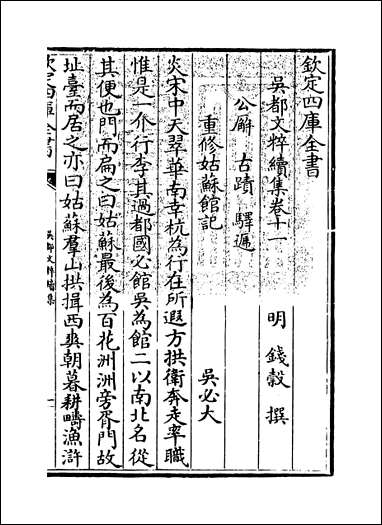 欽定四庫全書
吳都文粹續集卷十一
明 錢穀 撰
公廨 古蹟 驛遞
重修姑蘇館記
吳必大
炎宋中天翠華南幸杭為行在所遐方拱衛奔走率職
惟是一介行李其過都國必館吳為館二以南北名從
其便也門而扁之曰姑蘇最後為百花洲洲旁胥門故
址臺而居之亦曰姑蘇羣山拱揖西爽朝暮耕疇漁滸
欽定四庫全書
吳都文粹續集
一